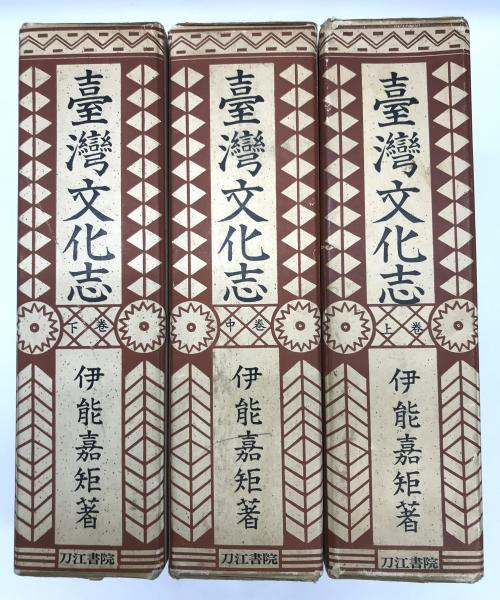 臺灣文化志
下卷
伊能嘉矩著
刀江書院
臺灣文化志
中卷
伊能嘉矩著
刀江書院
臺灣文化志
上卷
伊能嘉矩著
刀江書院